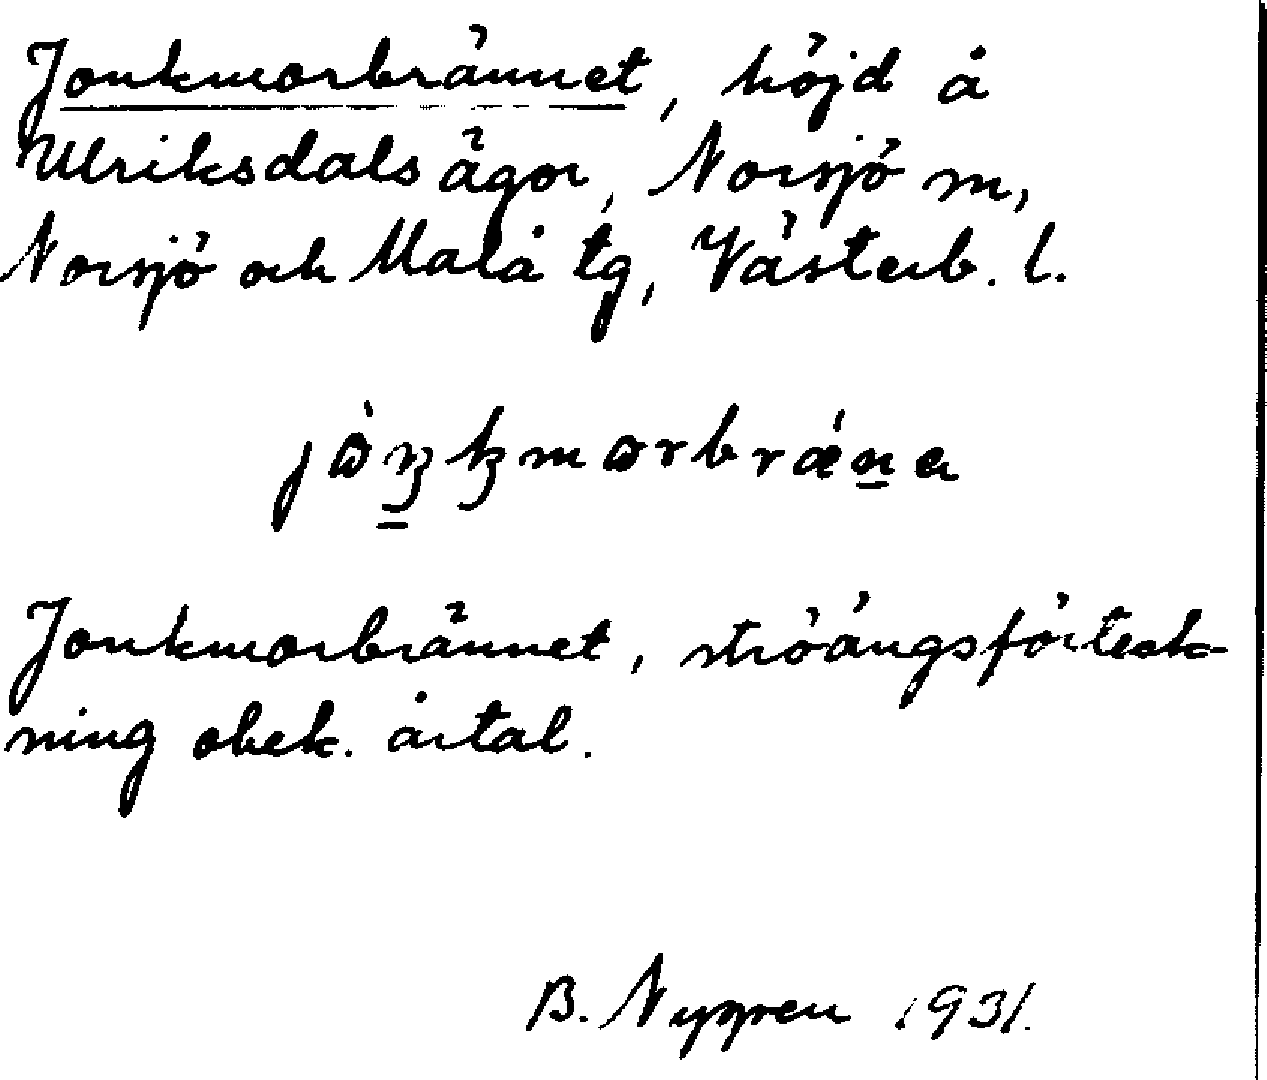 Jonkmorbrännet, höjd å
Ulriksdals ägor, Norsjö m,
Norsjö och Malå tg, Västerb. l.
Jonkmorbrännet, ströängsförteck-
ning obek. årtal.
B. Nygren 1931.